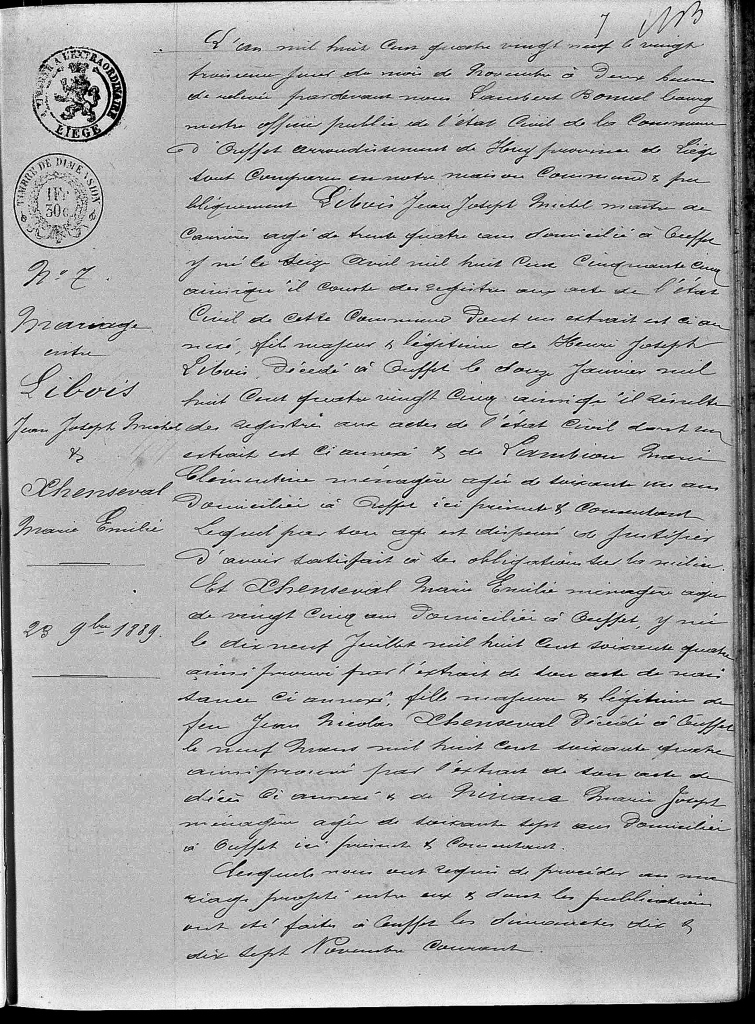 7
TIMBRE A L'EXTRAORDINAIRE
LIEGE
TIMBRE DE DIMENSION
1Fr
30c
N° 7
Mariage
entre
Libois
Jean Joseph Michel
&
Xhenseval
Marie Emilie
23 9bre 1889.
L'an mil huit cent quatre vingt neuf le vingt
troisieme jour du mois de Novembre à Deux heures
de relevée pardevant nous Lambert Bonvoel bourg
mestre officier public de l'état Civil de la Commune
d'Ouffet arrondissement de Huy province de Liége
sont Comparu en notre maison Commune & pu
bliquement Libois Jean Joseph Michel maitre de
Carrières agé de trente quatre ans domicilié à Ouffet
y né le seize Avril mil huit cent Cinquante cinq
ainsi qu'il conste des registres aux acte de l'état
Civil de cette Commune dont un extrait est ci an
nexé, fils majeur & légitime de Henri Joseph
Libois Décédé à Ouffet le douze Janvier mil
huit Cent quatre vingt Cinq ainsi qu'il résulte
des registres aux actes de l'état Civil dont un
extrait est ci annexé & de Lambion Marie
Clémentine ménagère agée de soixante un ans
Domiciliée à Ouffet ici présente & Consentant
Lequel par son age est dispensé de justifier
d'avoir satisfait à ses obligations sur la milice.
Et Xhenseval Marie Emilie ménagère agée
de vingt cinq ans Domiciliée à Ouffet, y née
le dix neuf Juillet mil huit Cent soixante quatre
ainsi prouvé par l'extrait de son acte de nais
sance ci annexé, fille majeure & légitime de
feu Jean Nicolas Xhenseval Décédé à Ouffet
le neuf Mars mil huit cent soixante quatre
ainsi prouvé par l'extrait de son acte de
décès ci annexé & de Ninane Marie Joseph
ménagère agée de soixante sept ans Domiciliée
à Ouffet ici présente & Consentant.
Lesquels nous ont requis de procéder au ma
riage projeté entre eux & dont les publications
ont été faites à Ouffet les dimanches dix &
dix sept Novembre Courant.